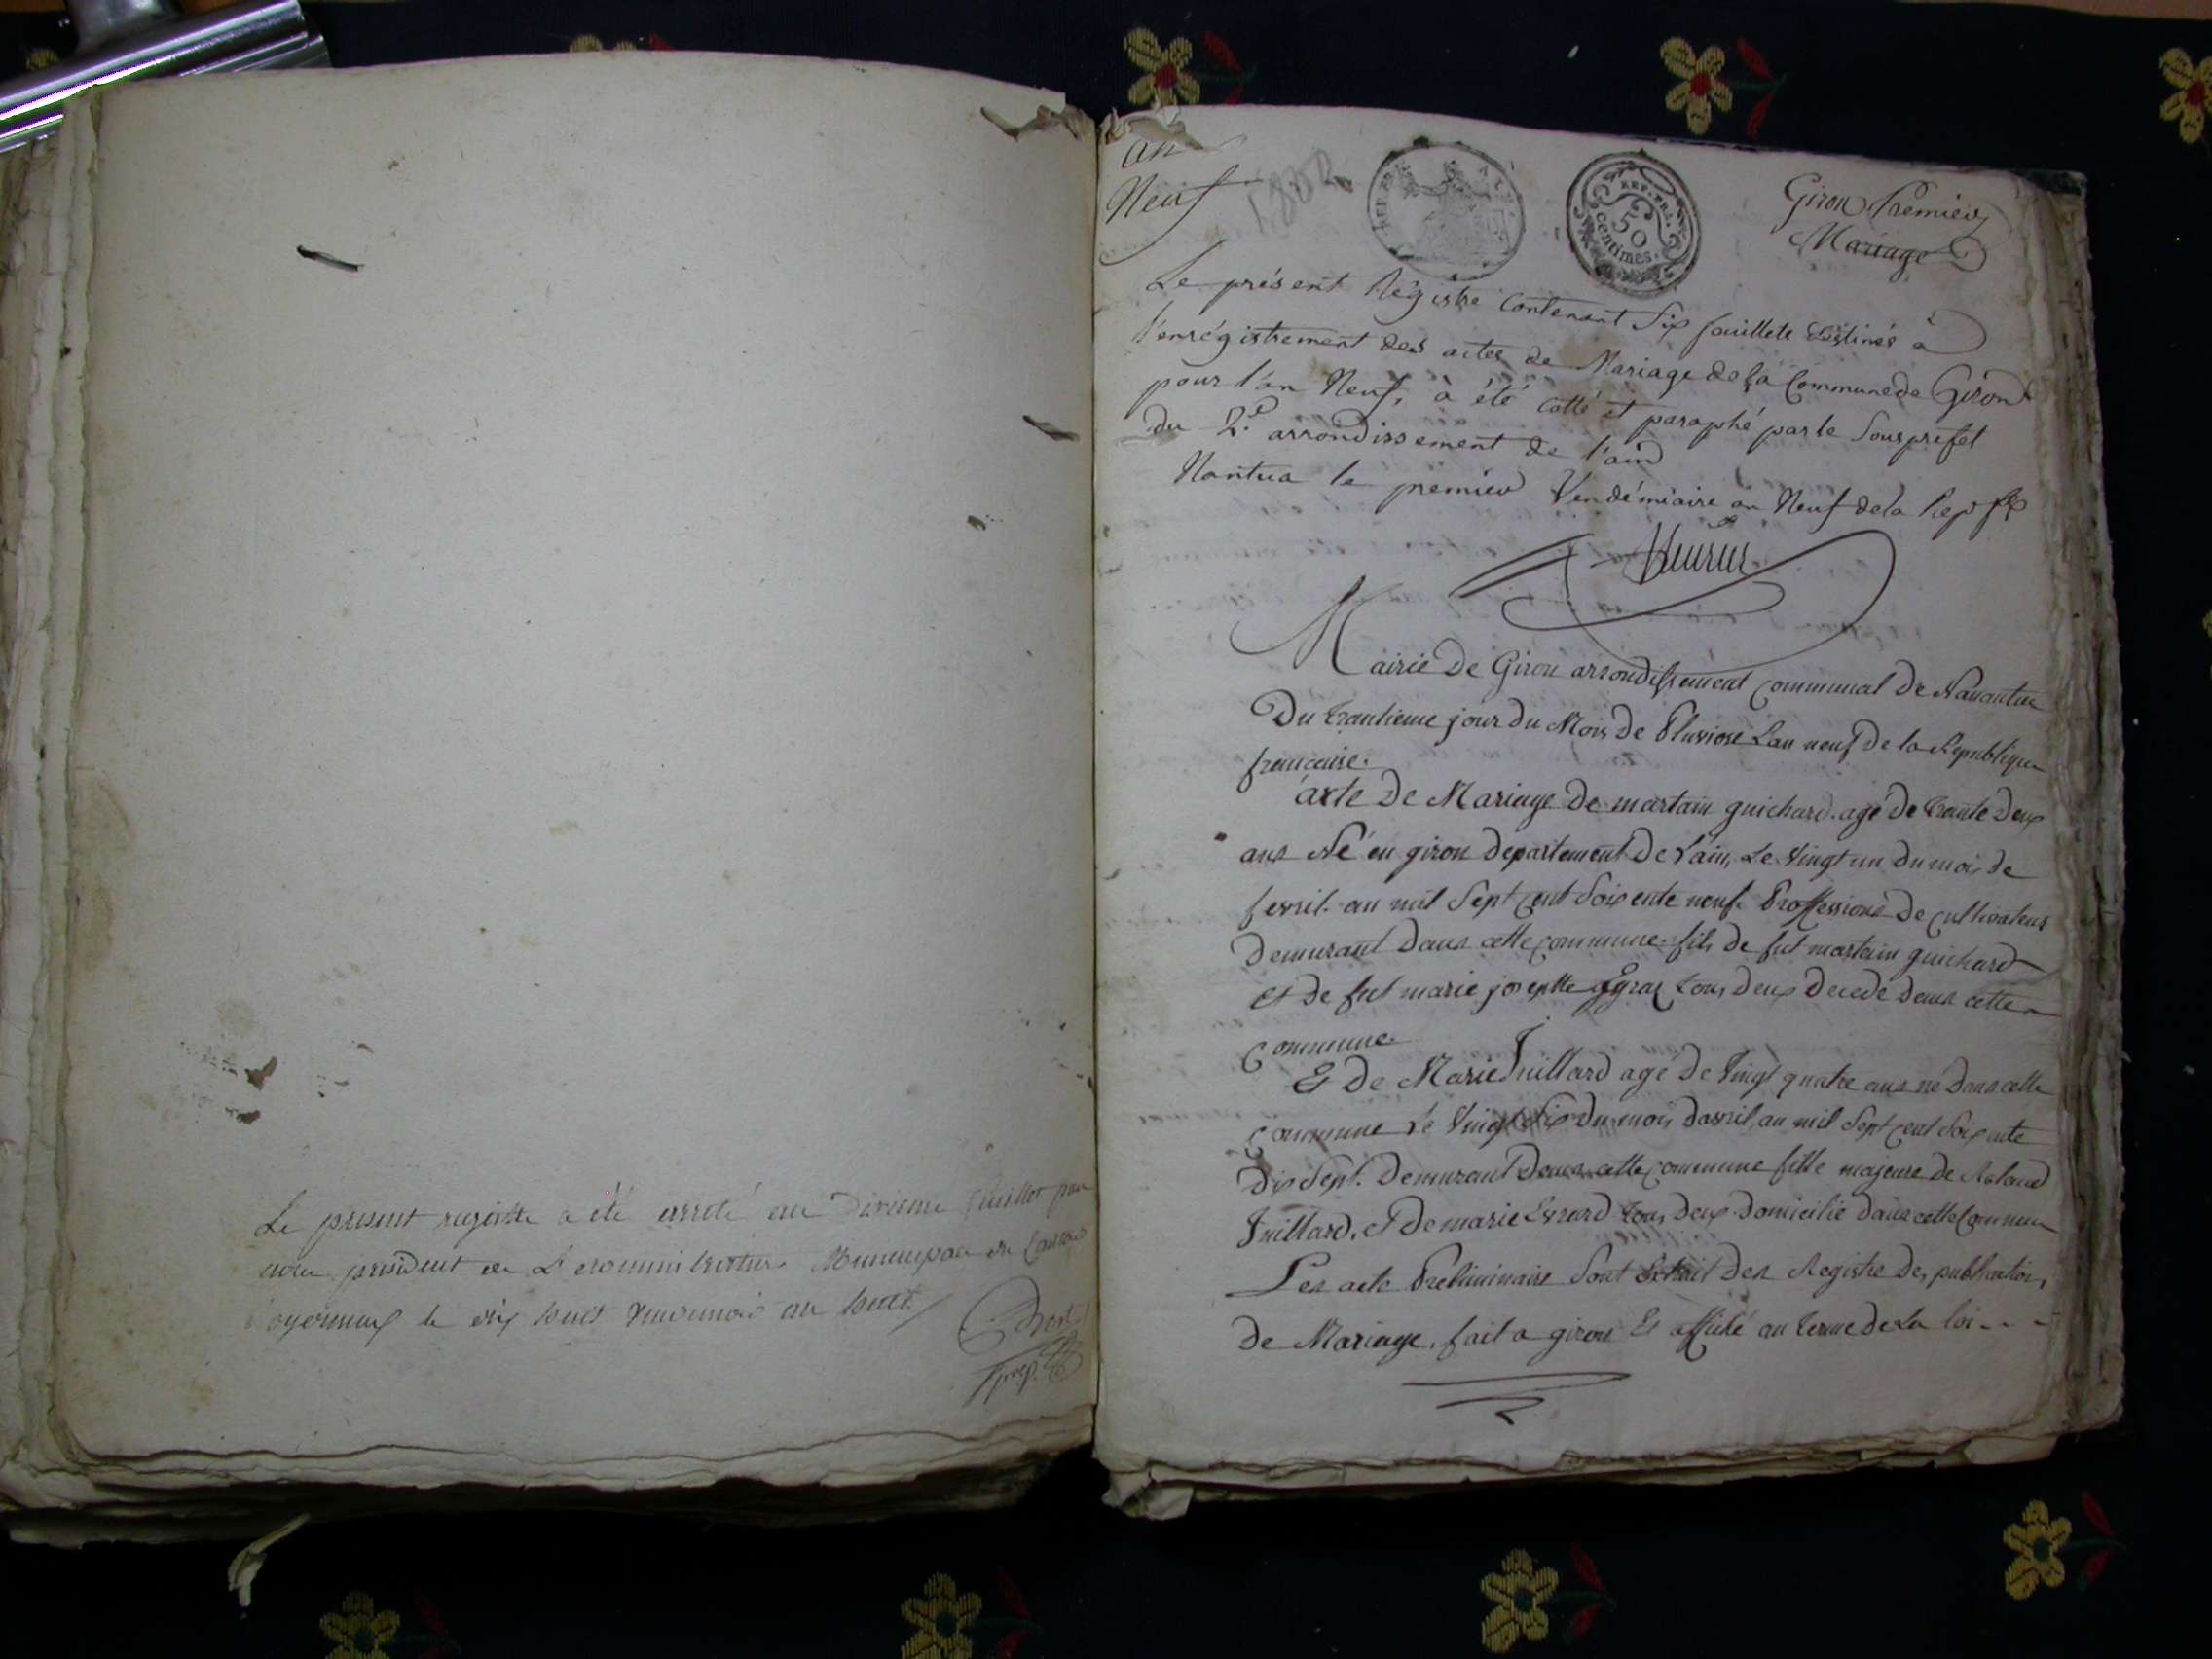 Le présent registre a été arreté au dixieme feuillet par
nous president de L'administration Municipale du Canton
d'oyonnax le dix huit vendemiaire an huit.
prep.
an
Neuf
1800
REP. FRA.
50
centimes.
Giron Premier
Mariage
Le présent Régistre contenant Six feuillets destinés à
l'enrégistrement des actes de Mariage de la Commune de Giron
pour l'an Neuf, à été cotté et paraphé par le Sousprefet
du 2.e arrondissement de l'ain
Nantua le premier Vendémiaire an Neuf de la Rep. fse
Mairie De Giron arrondissement communal de Nanantua
Du trantieme jour du Mois De Pluviose L'an neuf De la Republique
francaise.
acte De Mariage De martain guichard. agé De trante Deux
ans Né en giron departement De L'ain, Le Vingt un du mois de
fevril. an mil Sept cent Soixente neuf. Proffessions De cultivateur
Demurant Dans cette commune. fils de fut martain guichard
et De fut marie josephte tous deux Decede dans cette
commune.
Et De Marie Juillard agé De Vingt quatre ans né Dans cette
commune le Vingt Six Du mois davril an mil Sept cent Soixente
Dix Sept. Demurant Dans cette commune fille majeure de Roland
Juillard, et De marie Evrard tous deux Domicilie dans cette Commune
Les acte Preliminaire Sont Extrait Des Registre Des publication,
De Mariage, fait a giron Et affiché au terme De La loi - - -